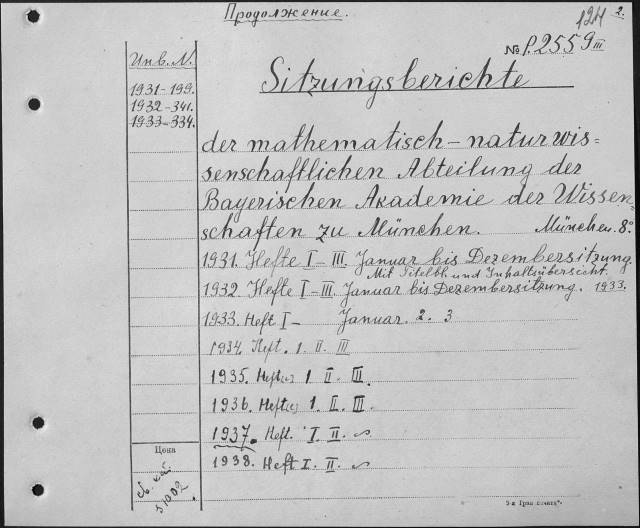 Продолжение.
124 2.
№ P.2559 III
Инв. №.
1931-199.
1932-341.
1933-334.
Sitzungsberichte
der mathematisch-naturwis=
senschaftlichen Abteilung der
Bayerischen Akademie der Wissen,
schaften zu München. München. 8°
1931. Hefte I-III. Januar bis Dezembersitzung.
Mit Titelbl. und Inhaltsübersicht.
1932. Hefte I-III. Januar bis Dezembersitzung. 1933.
1933. Heft I- Januar. 2. 3
1934. Heft. 1. II. III
1935. Heft(e) 1. II. III.
1936. Heft(e) 1. II. III.
1937. Heft. I. II. ~
1938. Heft I. II. ~
Цена
51002